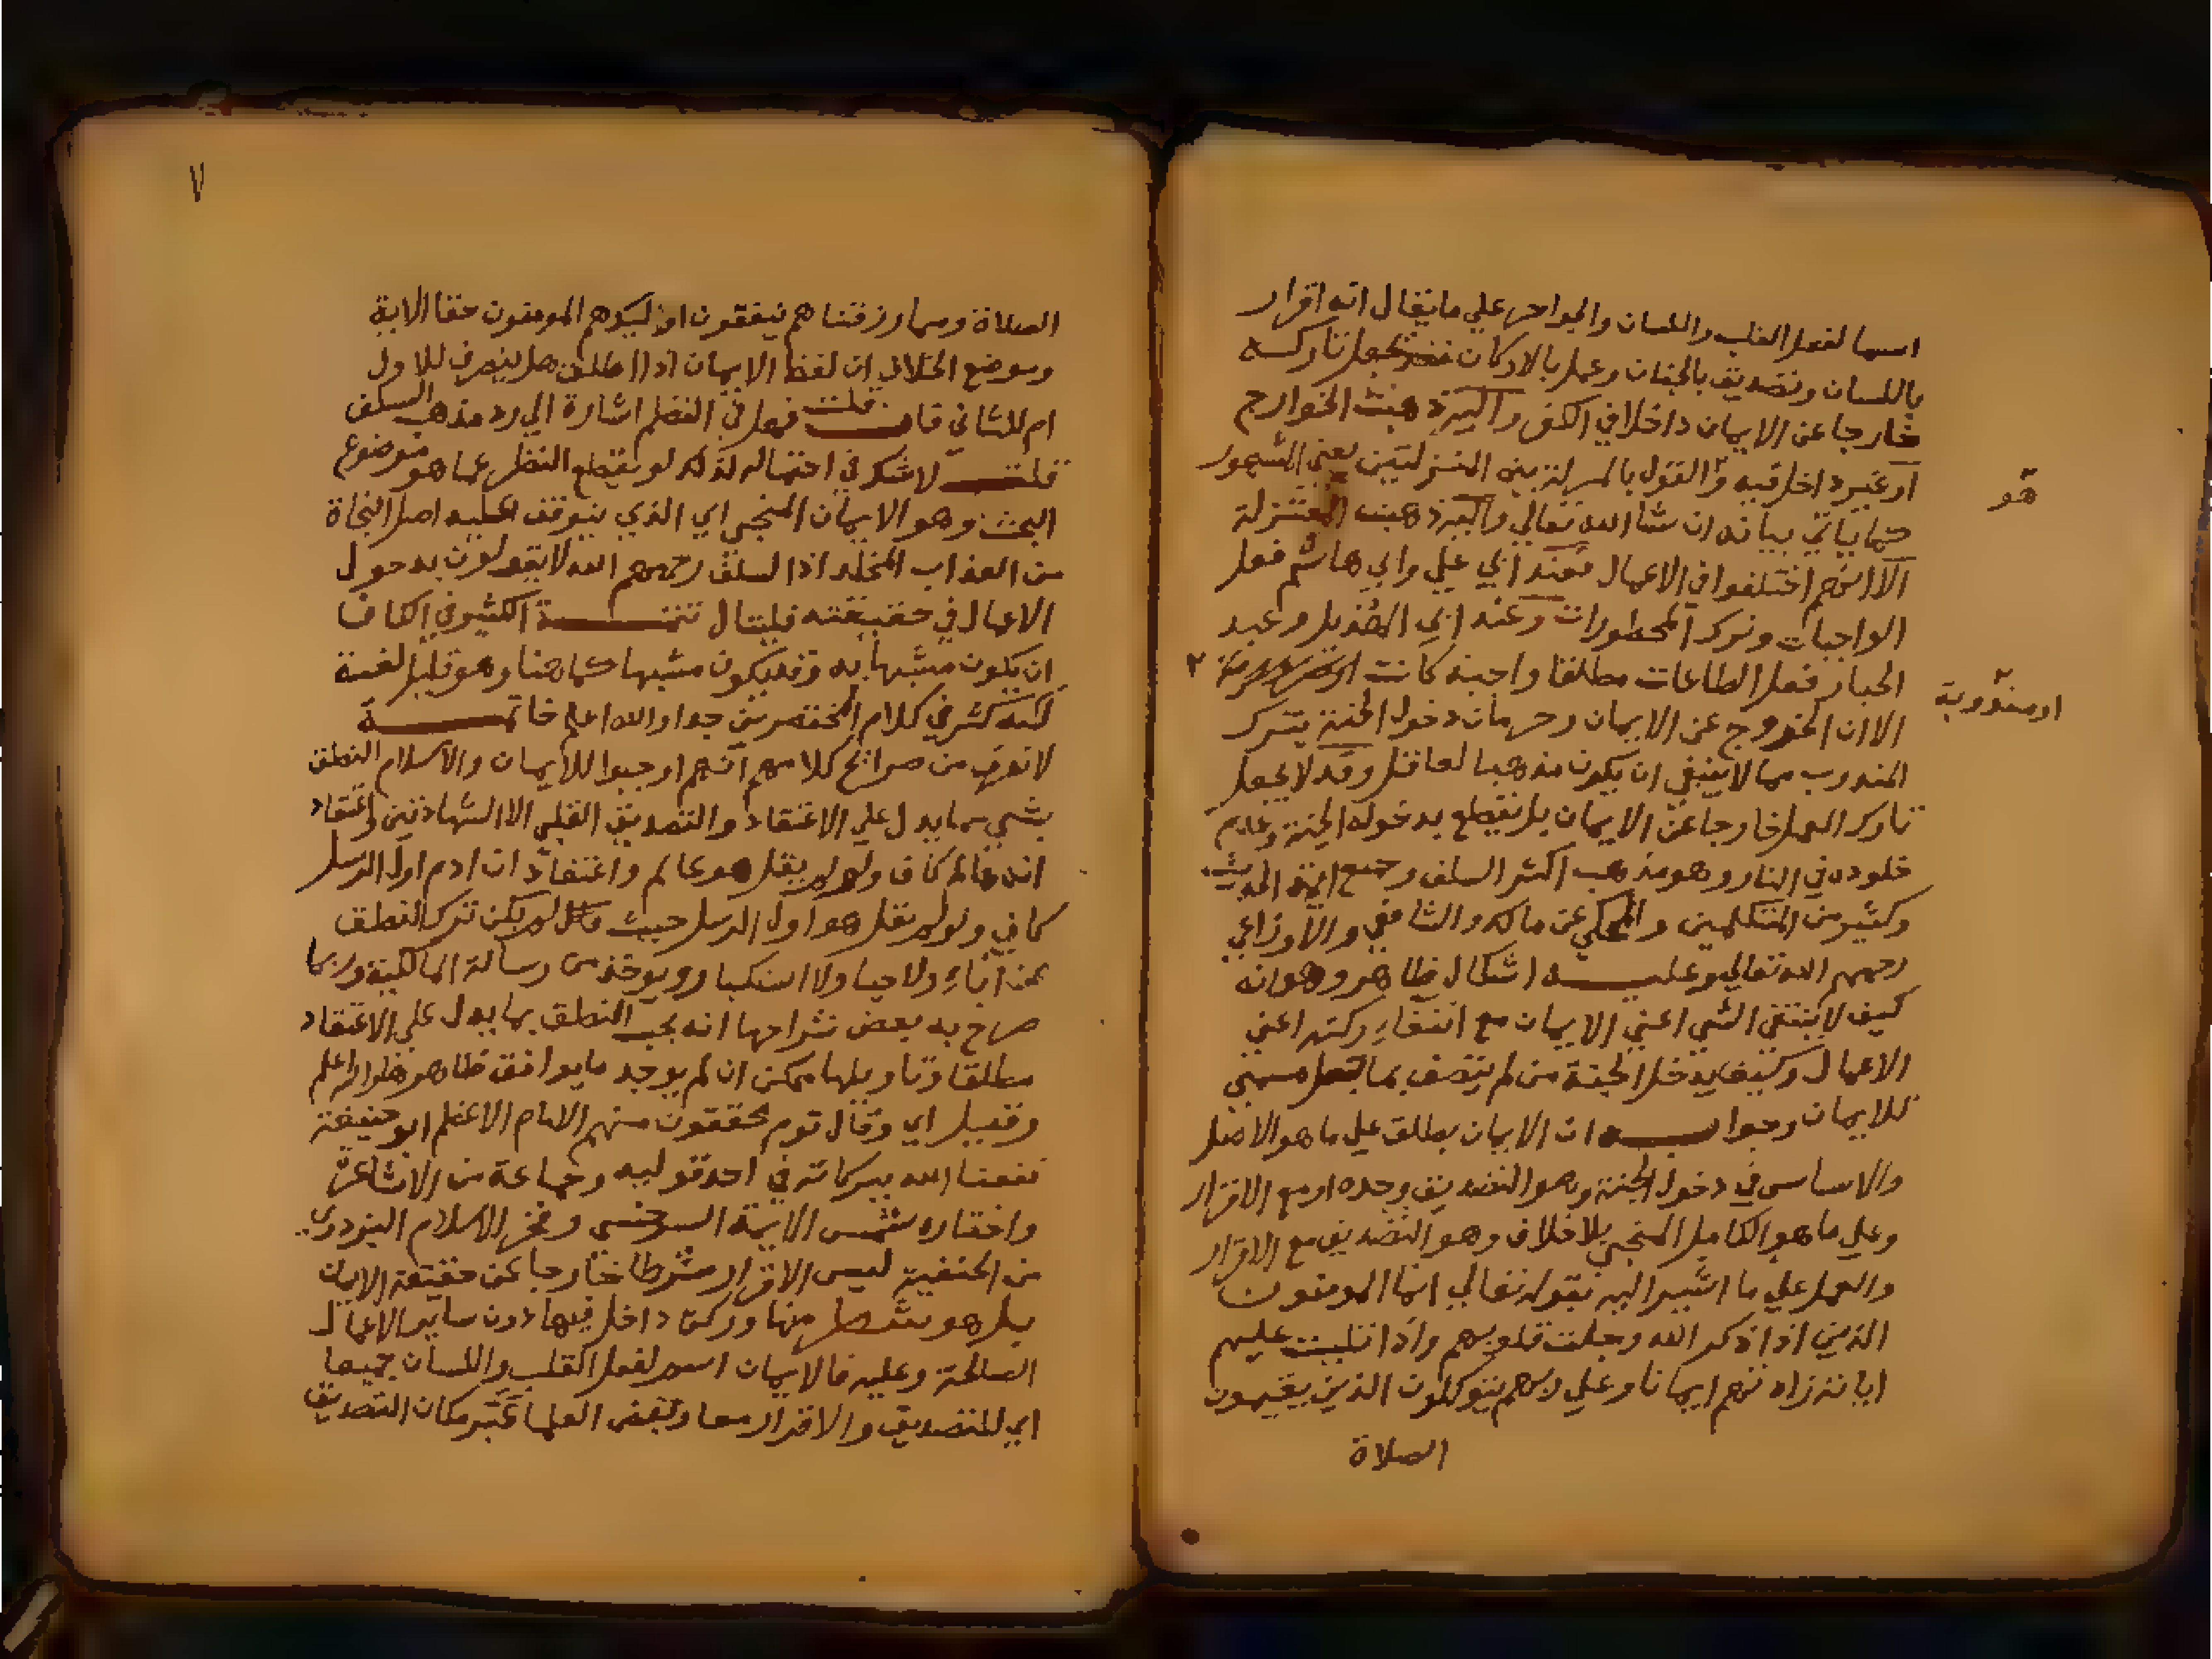 اسما لفعل القلب واللسان والجوارح علي ما يقال انه اقرار
باللسان وتصديق بالجنان وعمل بالاركان فقد يجعل تاركه
خارجا عن الايمان داخلا في الكفر واليه ذهبت الخوارج
او غير داخل فيه وهو القول بالمنزلة بين المنزلتين يعني المشهور
كما ياتي بيانه ان شا الله تعالي واليه ذهبت المعتزلة
الا انهم اختلفوا في الاعمال فعند ابي علي وابي هاشم فعل
الواجبات وترك المحظورات وعند ابي الهذيل وعبد
الجبار فعل الطاعات مطلقا واجبة كانت
الا ان الخروج عن الايمان وحرمان دخول الجنة بترك
المندوب مما لا ينبغي ان يكون مذهبا لعاقل وقد لا يجعل
تارك العمل خارجا عن الايمان بل يقطع بدخوله الجنة وعدم
خلوده في النار وهو مذهب اكثر السلف وجميع ائمة الحديث
وكثير من المتكلمين والمحكي عن مالك والشافعي والاوزاعي
رحمهم الله تعالي وعليه اشكال ظاهر وهو انه
كيف لا ينتفي الشي اعني الايمان مع انتفاء ركنه اعني
الاعمال وكيف يدخل الجنة من لم يتصف بما جعل مسمي
للايمان وجوابه ان الايمان يطلق علي ما هو الاصل
والاساس في دخول الجنة وهو التصديق وحده او مع الاقرار
وعلي ما هو الكامل المنجي بلا خلاف وهو التصديق مع الاقرار
والعمل علي ما اشير اليه بقوله تعالي انما المومنون
الذين اذا ذكر الله وجلت قلوبهم واذا تليت عليهم
اياته زادتهم ايمانا وعلي ربهم يتوكلون الذين يقيمون
الصلاة
هو
او مندوبة
٧
الصلاة ومما رزقناهم ينفقون اوليك هم المومنون حقا الاية
وموضع الخلاف ان لفظ الايمان اذا اطلق هل ينصرف للاول
ام للثاني فان قلت فهل في النظم اشارة الي رد مذهب السلف
قلت لا شك في احتماله لذلك لو يقطع النظر عما هو موضوع
البحث وهو الايمان المنجي اي الذي يتوقف عليه اصل النجاة
من العذاب المخلد اذ السلف رحمهم الله لا يقولون بدخول
الاعمال في حقيقته فليتامل تتمة الكثير في الكاف
ان يكون مشبها به وقد يكون مشبها كما هنا وهو قليل لغة
لكنه كثر في كلام المختصرين جدا والله اعلم خاتمة
لا نعرف من صرايح كلامهم انهم اوجبوا للايمان والاسلام النطق
بشي مما يدل علي الاعتقاد والتصديق القلبي الا الشهادتين واعتقاد
انه عالم كاف ولو لم يقل هو عالم واعتقاد ان ادم اول الرسل
كافي ولو لم يقل هو اول الرسل حيث لم يكن ترك النطق
عن اباء ولا حيا ولا استكبار ويوخذ من رسالة المالكية وربما
صرح به بعض شراحها انه يجب النطق بما يدل علي الاعتقاد
مطلقا وتاويلها ممكن ان لم يوجد ما يوافق ظاهرها والله اعلم
وقيل اي وقال قوم محققون منهم الامام الاعظم ابو حنيفة
نفعنا الله ببركاته في احد قوليه وجماعة من الاشاعرة
واختاره شمس الايمة السرخسي وفخر الاسلام البزدوي
من الحنفية ليس الاقرار شرطا خارجا عن حقيقة الايمان
بل هو شطر منها وركن داخل فيها دون ساير الاعمال
الصالحة وعليه فالايمان اسم لفعل القلب واللسان جميعا
اي للتصديق والاقرار معا وبعض العلما عبر مكان التصديق